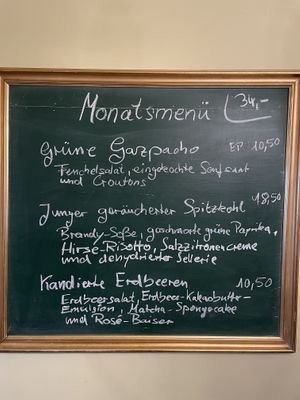 Monatsmenü 34,-
Grüne Gazpacho EP 10,50
Fenchelsalat, eingelegte Senfsaat
und Croutons
Junger geräucherter Spitzkohl 18,50
Brandy-Soße, geschmorte grüne Paprika,
Hirse-Risotto, Salzzitronencreme
und dehydrierter Sellerie
Kandierte Erdbeeren 10,50
Erdbeersalat, Erdbeer-Kakaobutter-
Emulsion, Matcha-Spongecake
und Rosé-Baiser